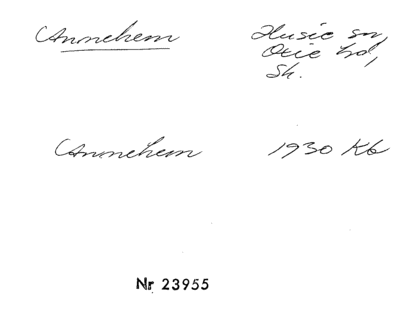 Annehem Husie sn,
Oxie hd,
Sk.
Annehem 1930 Kb
Nr 23955